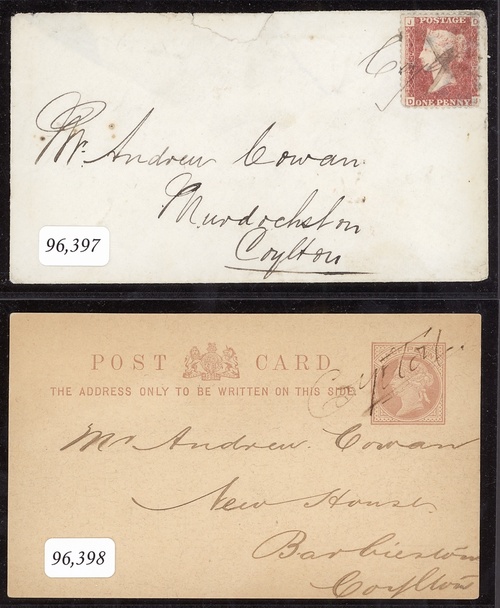 POSTAGE
J D
D J
ONE PENNY
Coylton
Mr. Andrew Cowan
Murdochston
Coylton
96,397
POST CARD
THE ADDRESS ONLY TO BE WRITTEN ON THIS SIDE.
Coylton
Mr Andrew Cowan
New House
Barbieston
Coylton
96,398